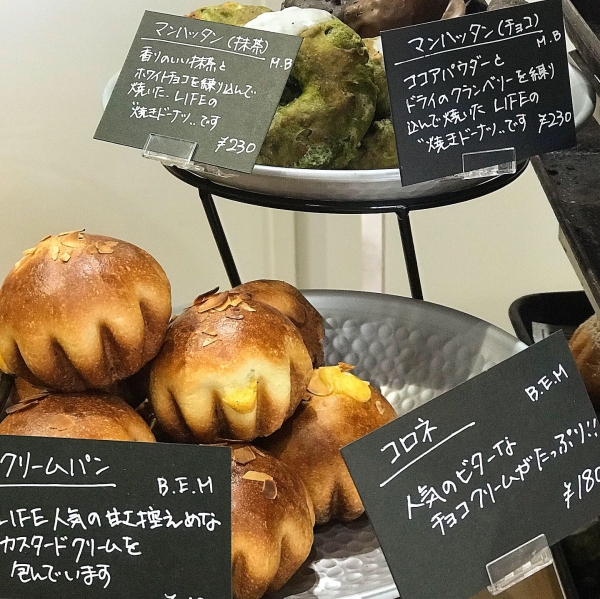 マンハッタン(抹茶)
M.B
香りのいい抹茶と
ホワイトチョコを練り込んで
焼いた LIFEの
"焼きドーナツ"です
¥230
マンハッタン(チョコ)
M.B
ココアパウダーと
ドライのクランベリーを練り
込んで焼いた LIFEの
"焼きドーナツ"です
¥230
クリームパン
B.E.M
LIFE人気の甘さ控えめな
カスタードクリームを
包んでいます
コロネ
B.E.M
人気のビターな
チョコクリームがたっぷり!!
¥180